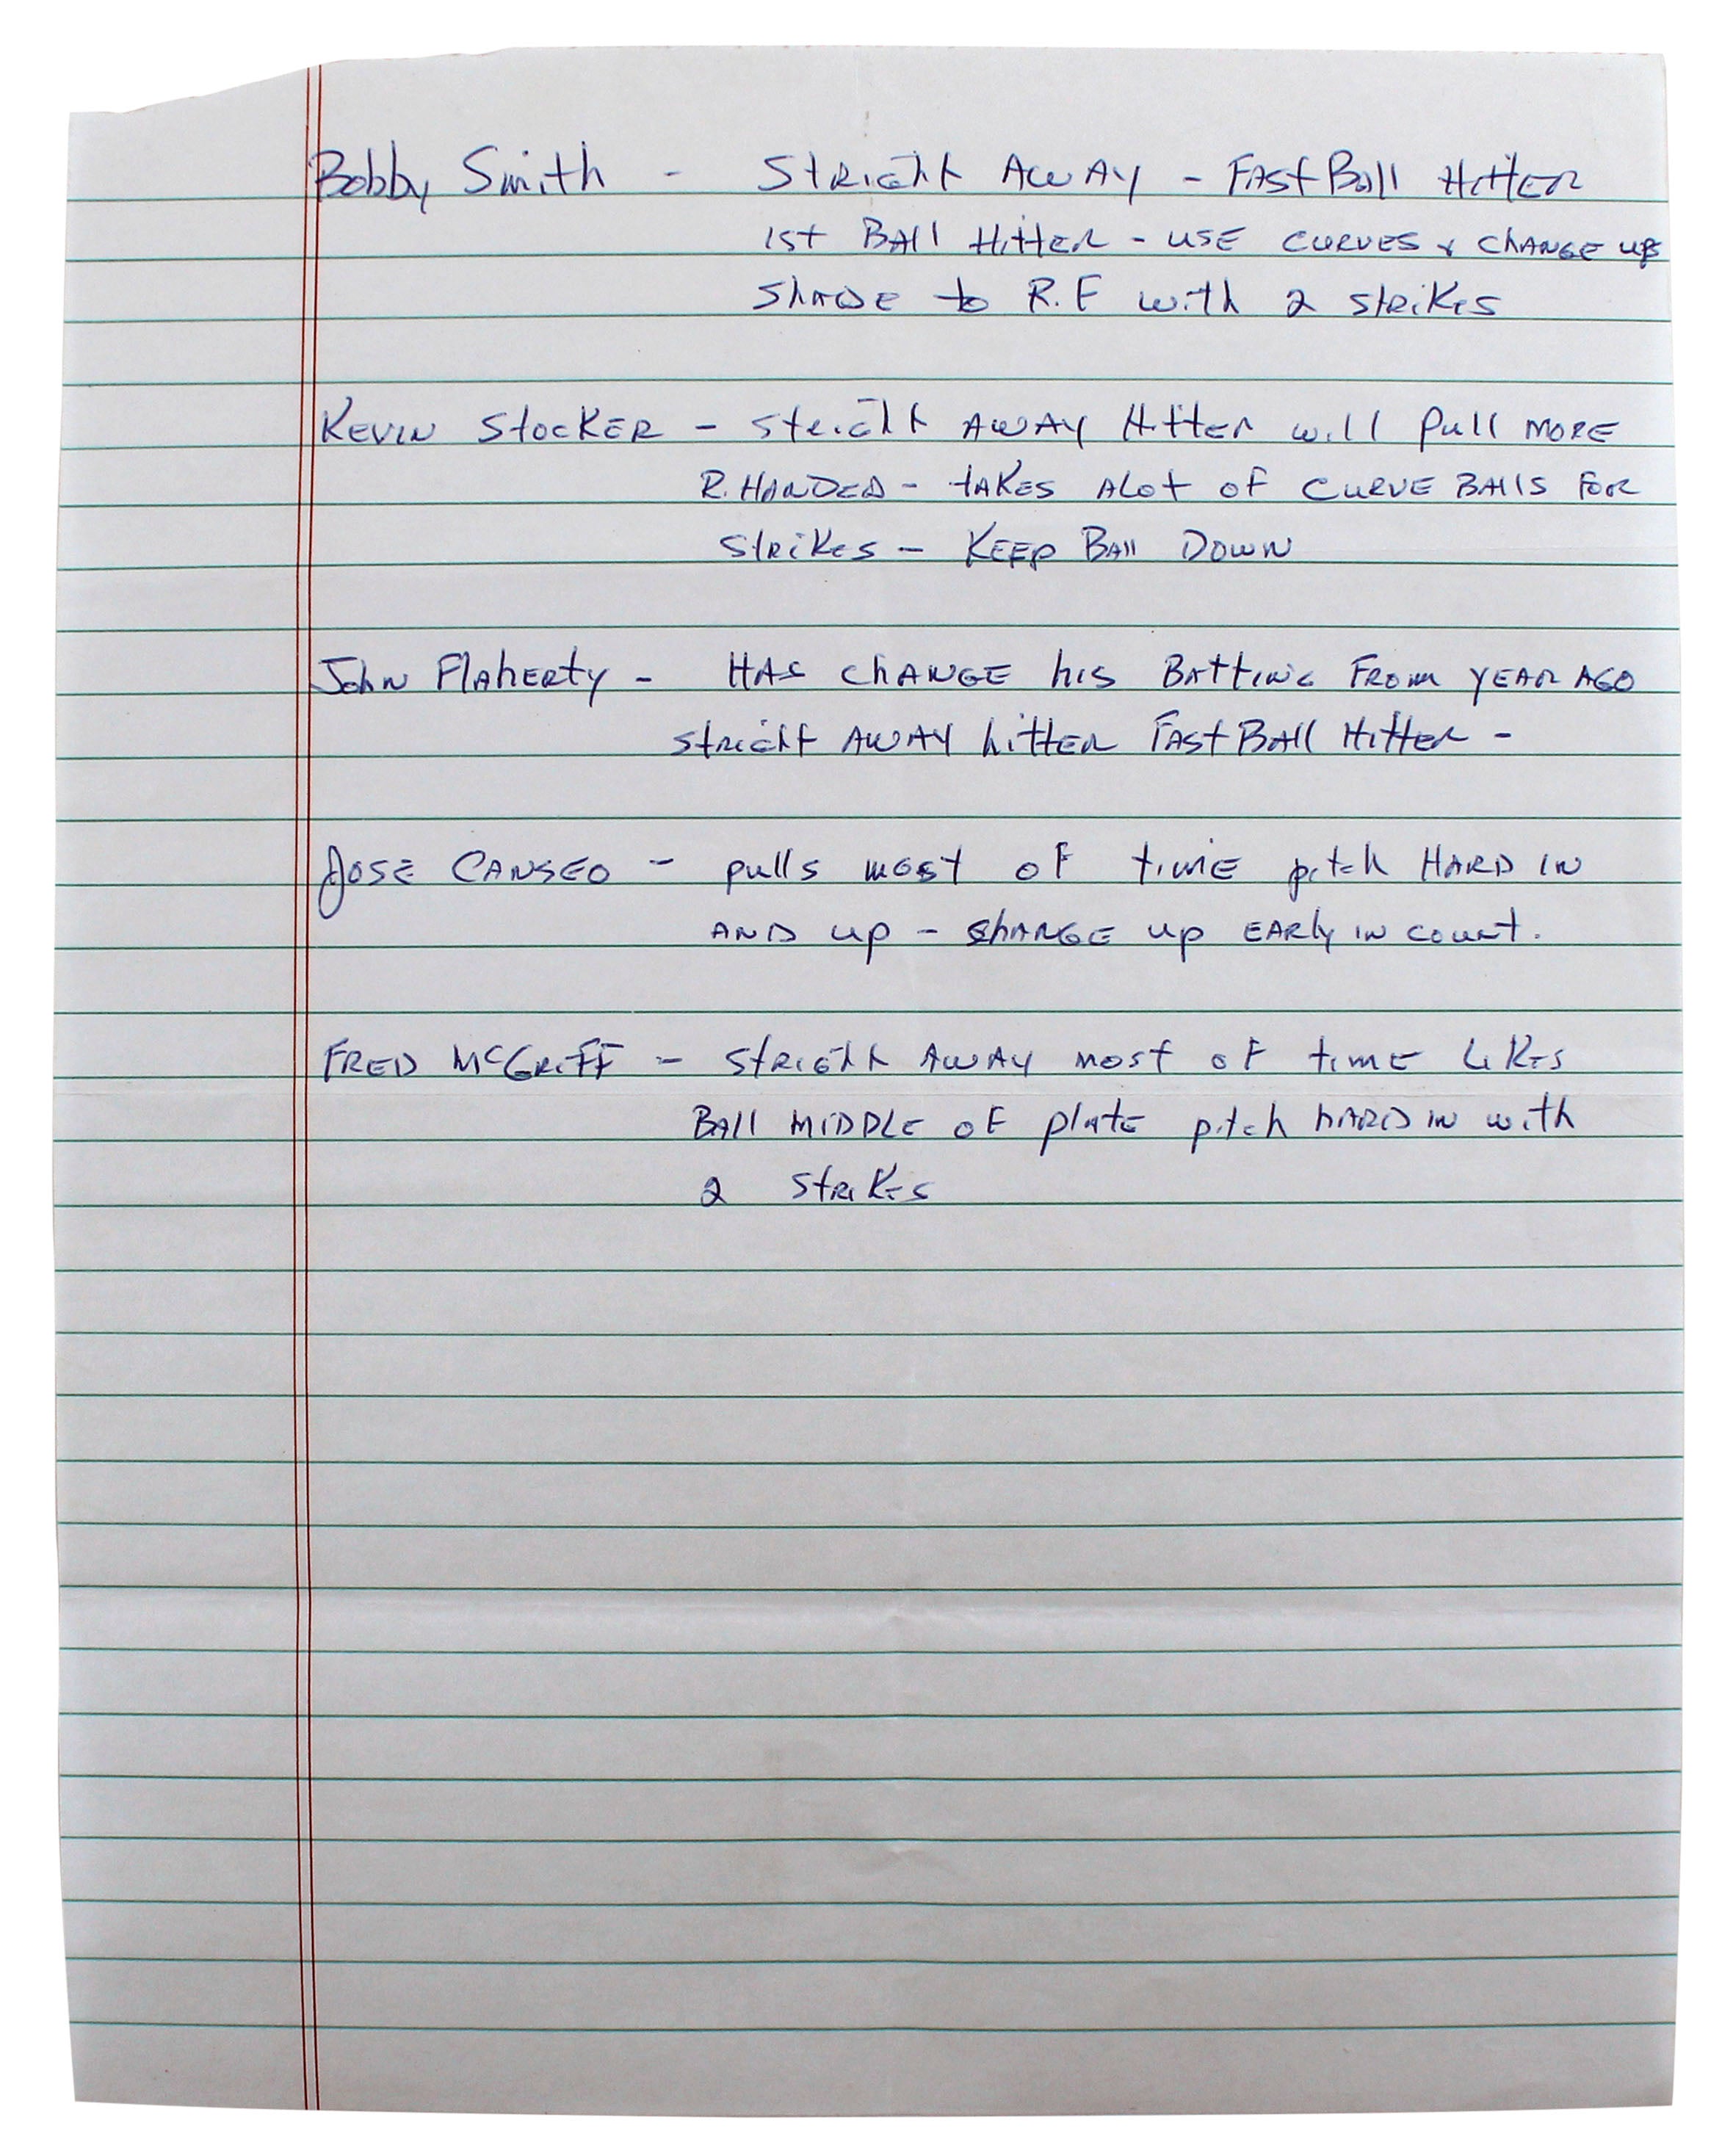 Bobby Smith - STRIGHT AWAY - FASTBALL HITTER
1ST BALL HITTER - USE CURVES & CHANGE UPS
SHADE to R.F with 2 STRIKES
KEVIN STOCKER - STRIGHT AWAY HITTER will PULL MORE
R. HANDED - TAKES ALOT OF CURVE BALLS FOR
STRIKES - KEEP BALL DOWN
JOHN FLAHERTY - HAS CHANGE his BATTING FROM YEAR AGO
STRIGHT AWAY hitter FASTBALL HITTER -
JOSE CANSEO - pulls most OF time pitch HARD IN
AND up - CHANGE up EARLY IN COUNT.
FRED McGRIFF - STRIGHT AWAY most OF time LIKES
BALL MIDDLE OF plate pitch HARD IN with
2 STRIKES